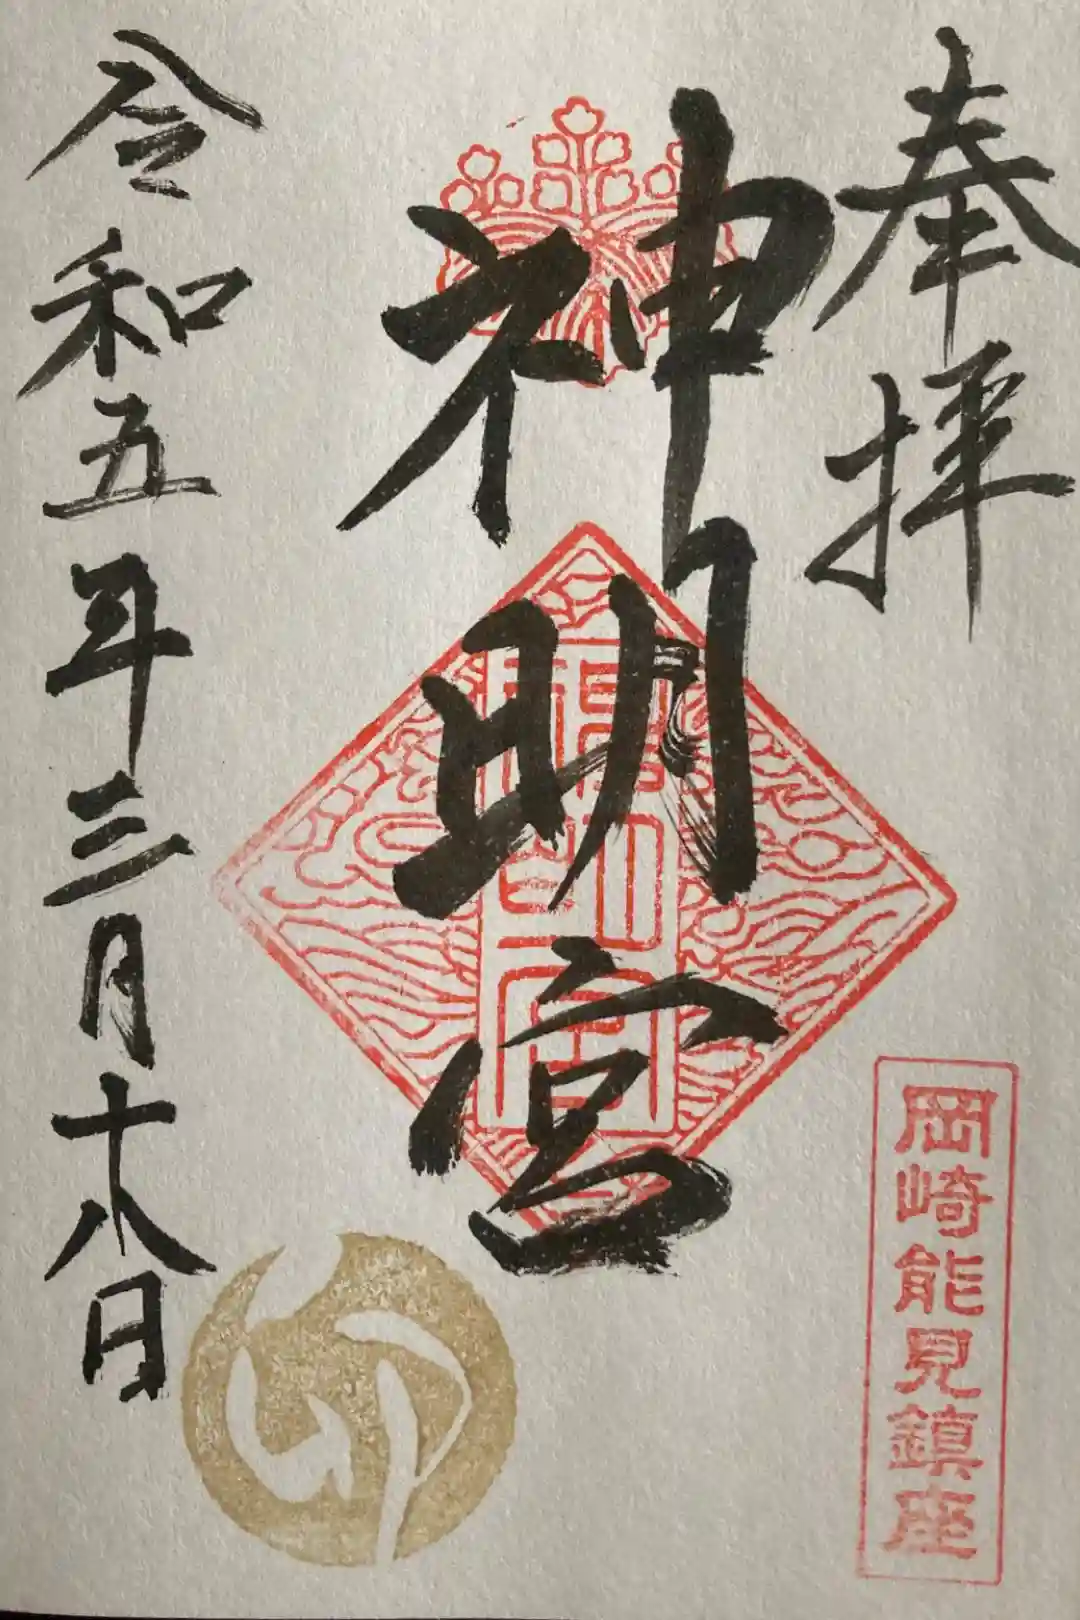 奉拝
岡崎能見鎮座
神明宮
令和五年三月十八日
卯